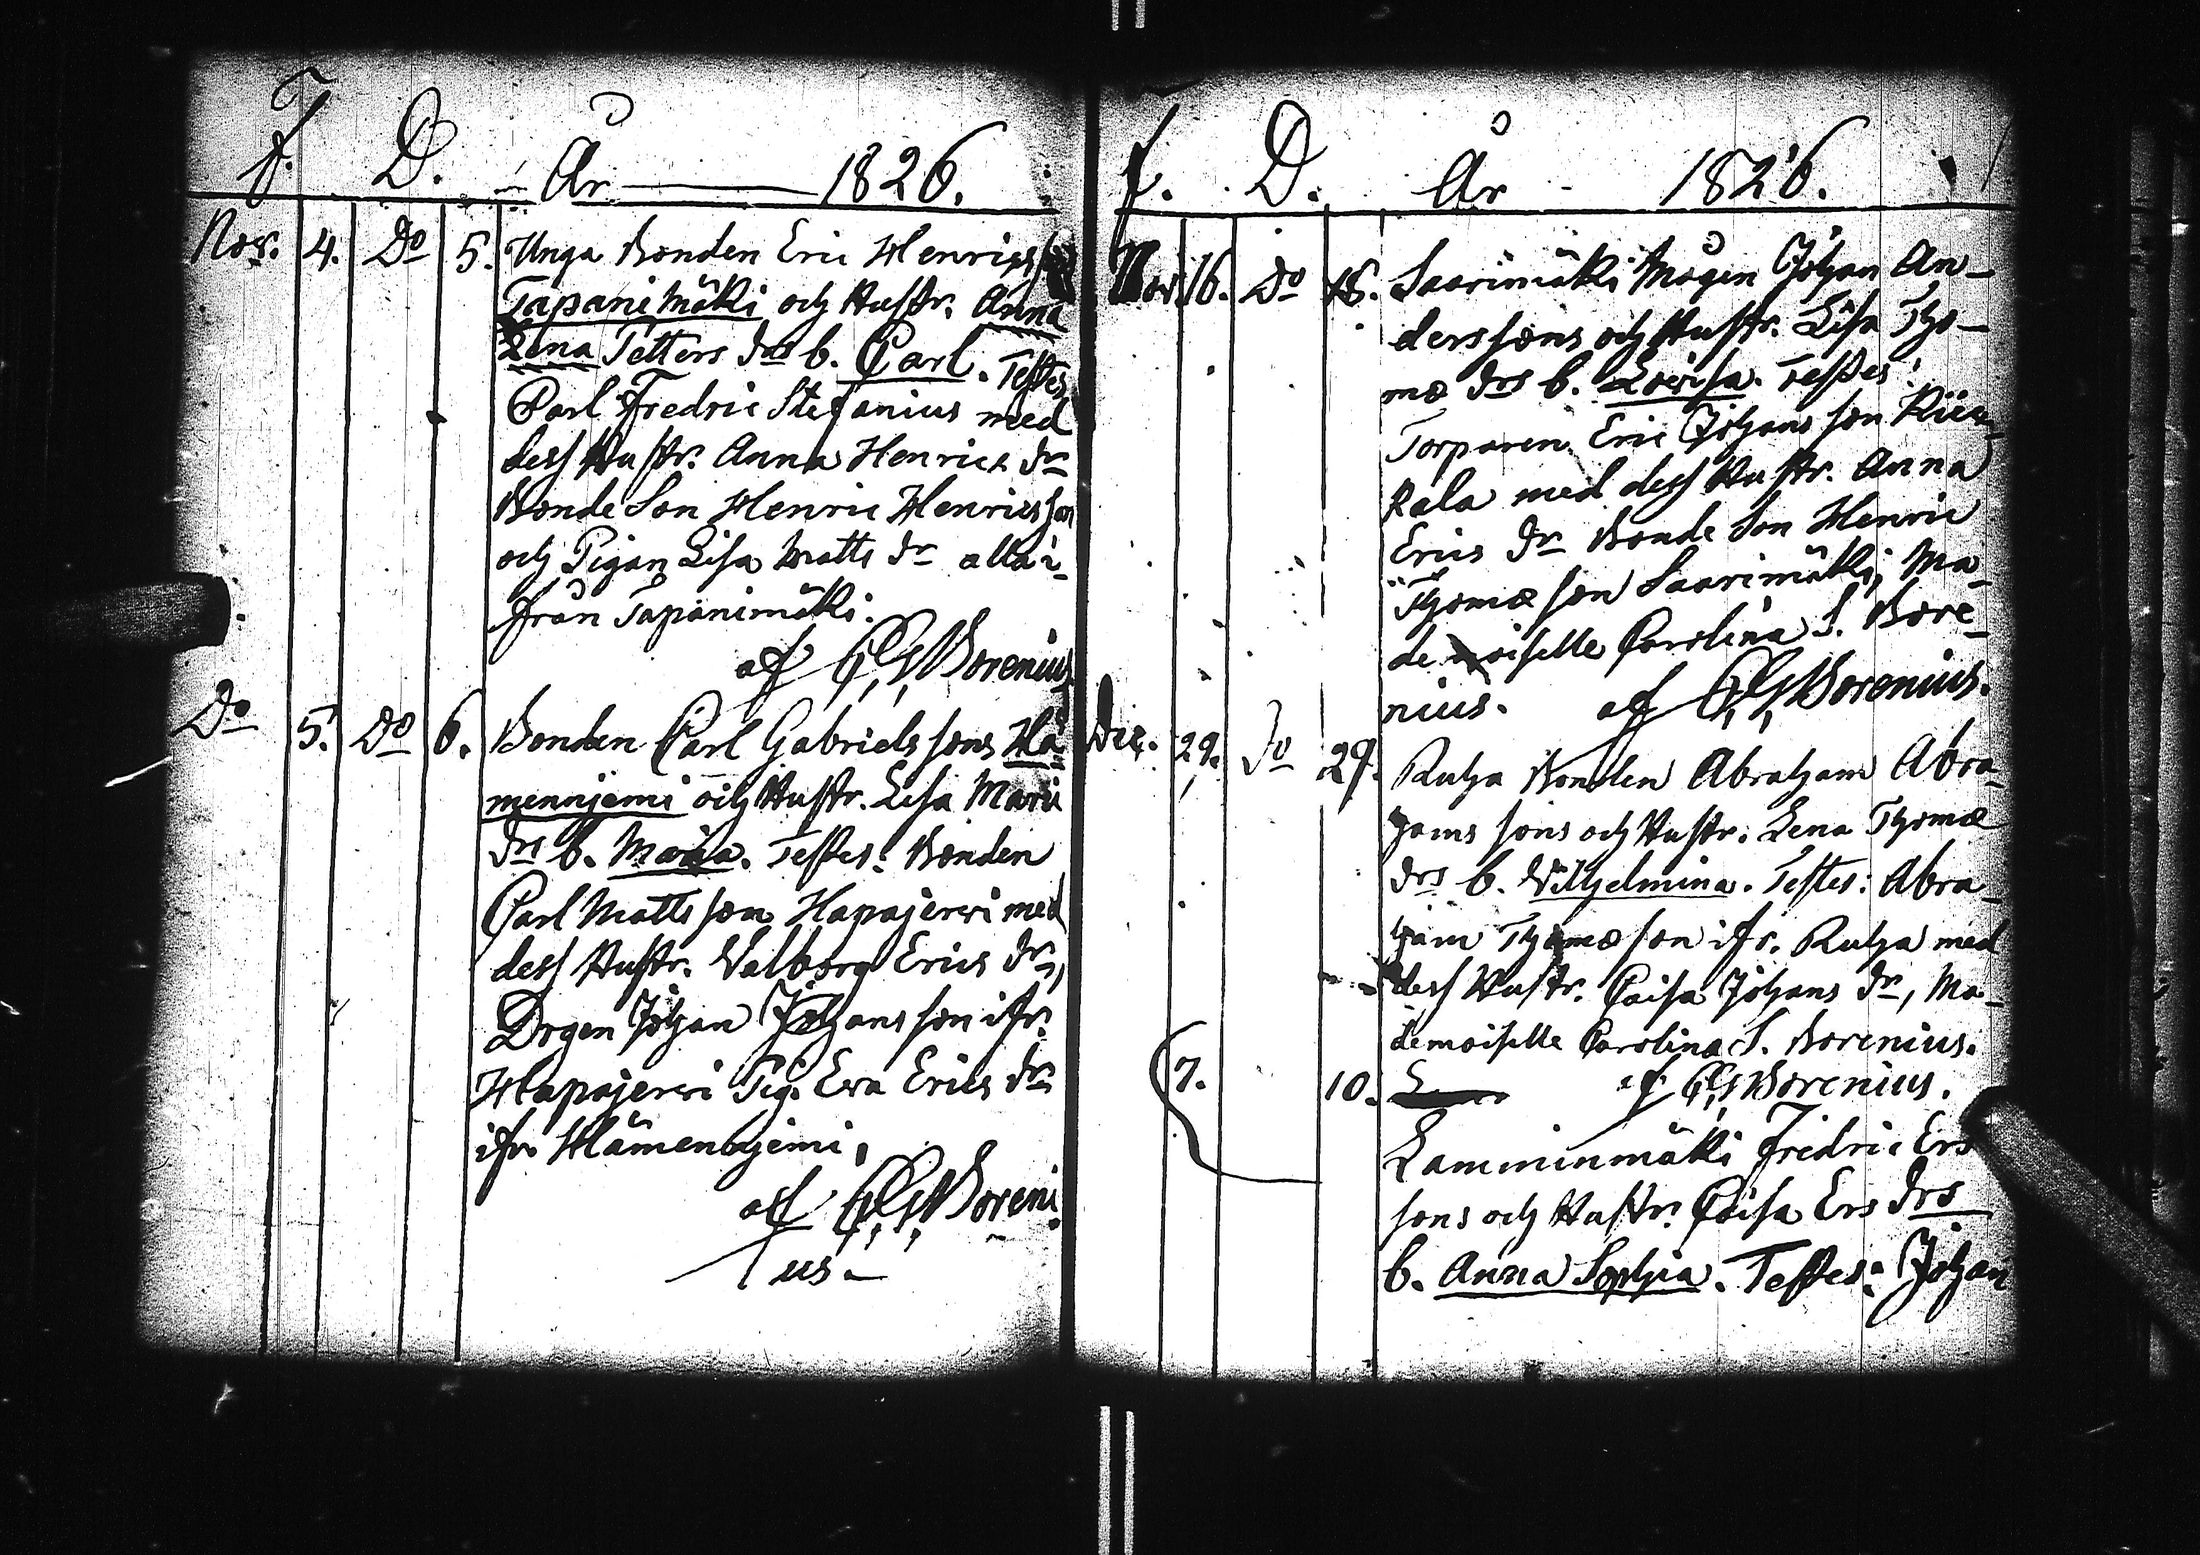 f. D. År 1826.
Nov. 4. Do 5. Unga Bonden Eric Henrics
Tapanimäki och Hustr. Anna
Lena Petters drs b. Carl. Testes
Carl Fredric Stefanius med
dess Hustr. Anna Henrics dr
Bonde Son Henric Henricsson
och Pigan Lisa Matts dr alla i-
från Tapanimäki.
af C. G. Borenius
Do 5. Do 6. Bonden Carl Gabrielssons Hä
mennjemi och Hustr. Lisa Marti
drs b. Maria. Testes: Bonden
Carl Mattsson Hapajerwi med
dess Hustr. Valborg Erics dr,
Drgen Johan Johansson ifr.
Hapajerwi Pig. Eva Erics dr
ifr Hämennjemi.
af C. G. Boreni
us
f. D. År 1826.
Nov. 16. Do 18. Saarimäki Mågen Johan An-
derssons och Hustr. Lisa Tho-
mæ drs b. Lovisa. Testes:
Torparen Eric Johansson
kala med dess Hustr. Anna
Erics dr Bonde Son Henric
Thomæson Saarimäki, Ma-
de moiselle Carolina S. Bore-
nius. af C. G. Borenius.
Dec. 29. Do 29. Ruha Bonden Abraham Abra-
hams sons och Hustr. Lena Thomæ
drs b. Wilhelmina. Testes: Abra-
ham Thomæson ifr. Ruha med
dess Hustr. Caisa Johans dr, Ma-
demoiselle Carolina S. Borenius.
7. 10. af C. G. Borenius.
Lamminmäki Fredric Ers
sons och Hustr. Caisa Ers drs
b. Anna Sophia. Testes: Johan